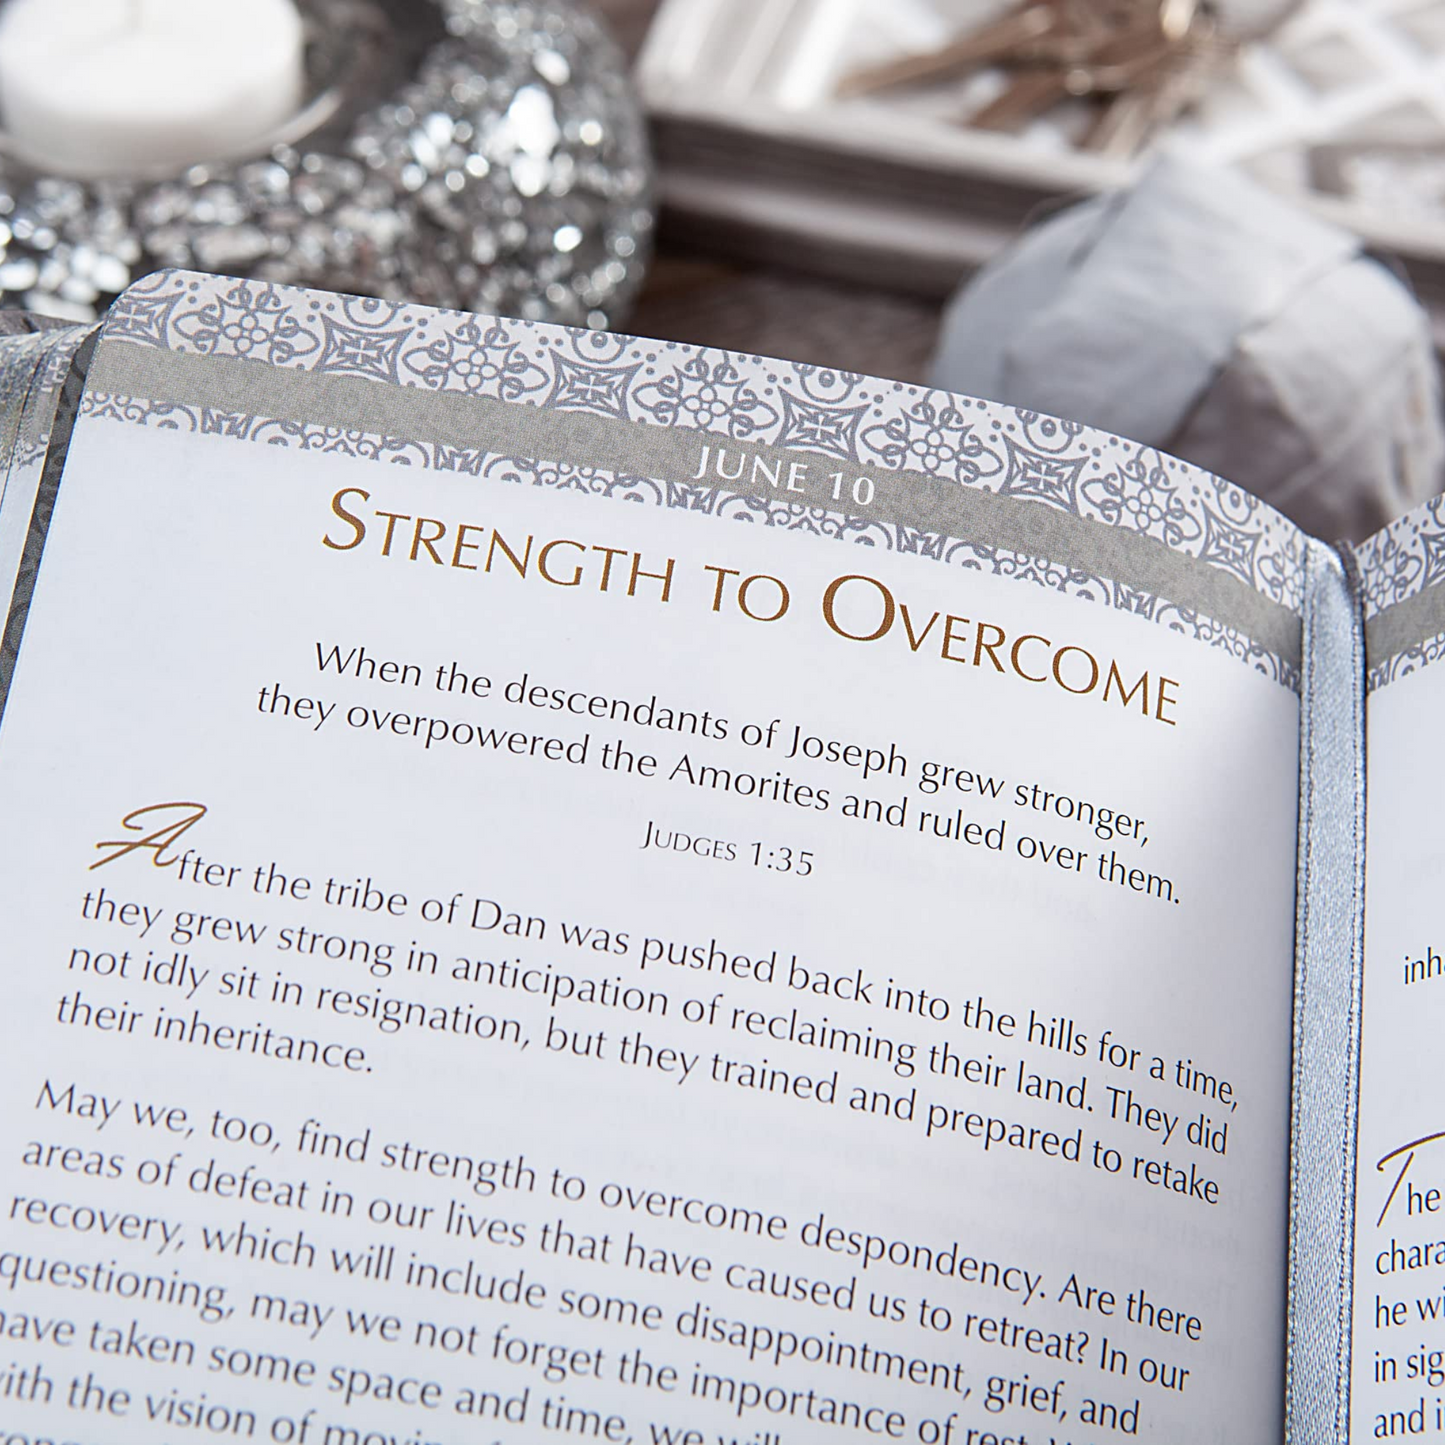 JUNE 10
STRENGTH TO OVERCOME
When the descendants of Joseph grew stronger,
they overpowered the Amorites and ruled over them.
JUDGES 1:35
After the tribe of Dan was pushed back into the hills for a time,
they grew strong in anticipation of reclaiming their land. They did
not idly sit in resignation, but they trained and prepared to retake
their inheritance.
May we, too, find strength to overcome despondency. Are there
areas of defeat in our lives that have caused us to retreat? In our
recovery, which will include some disappointment, grief, and
questioning, may we not forget the importance of
have taken some space and time, we will
with the vision of
The
he
in
and